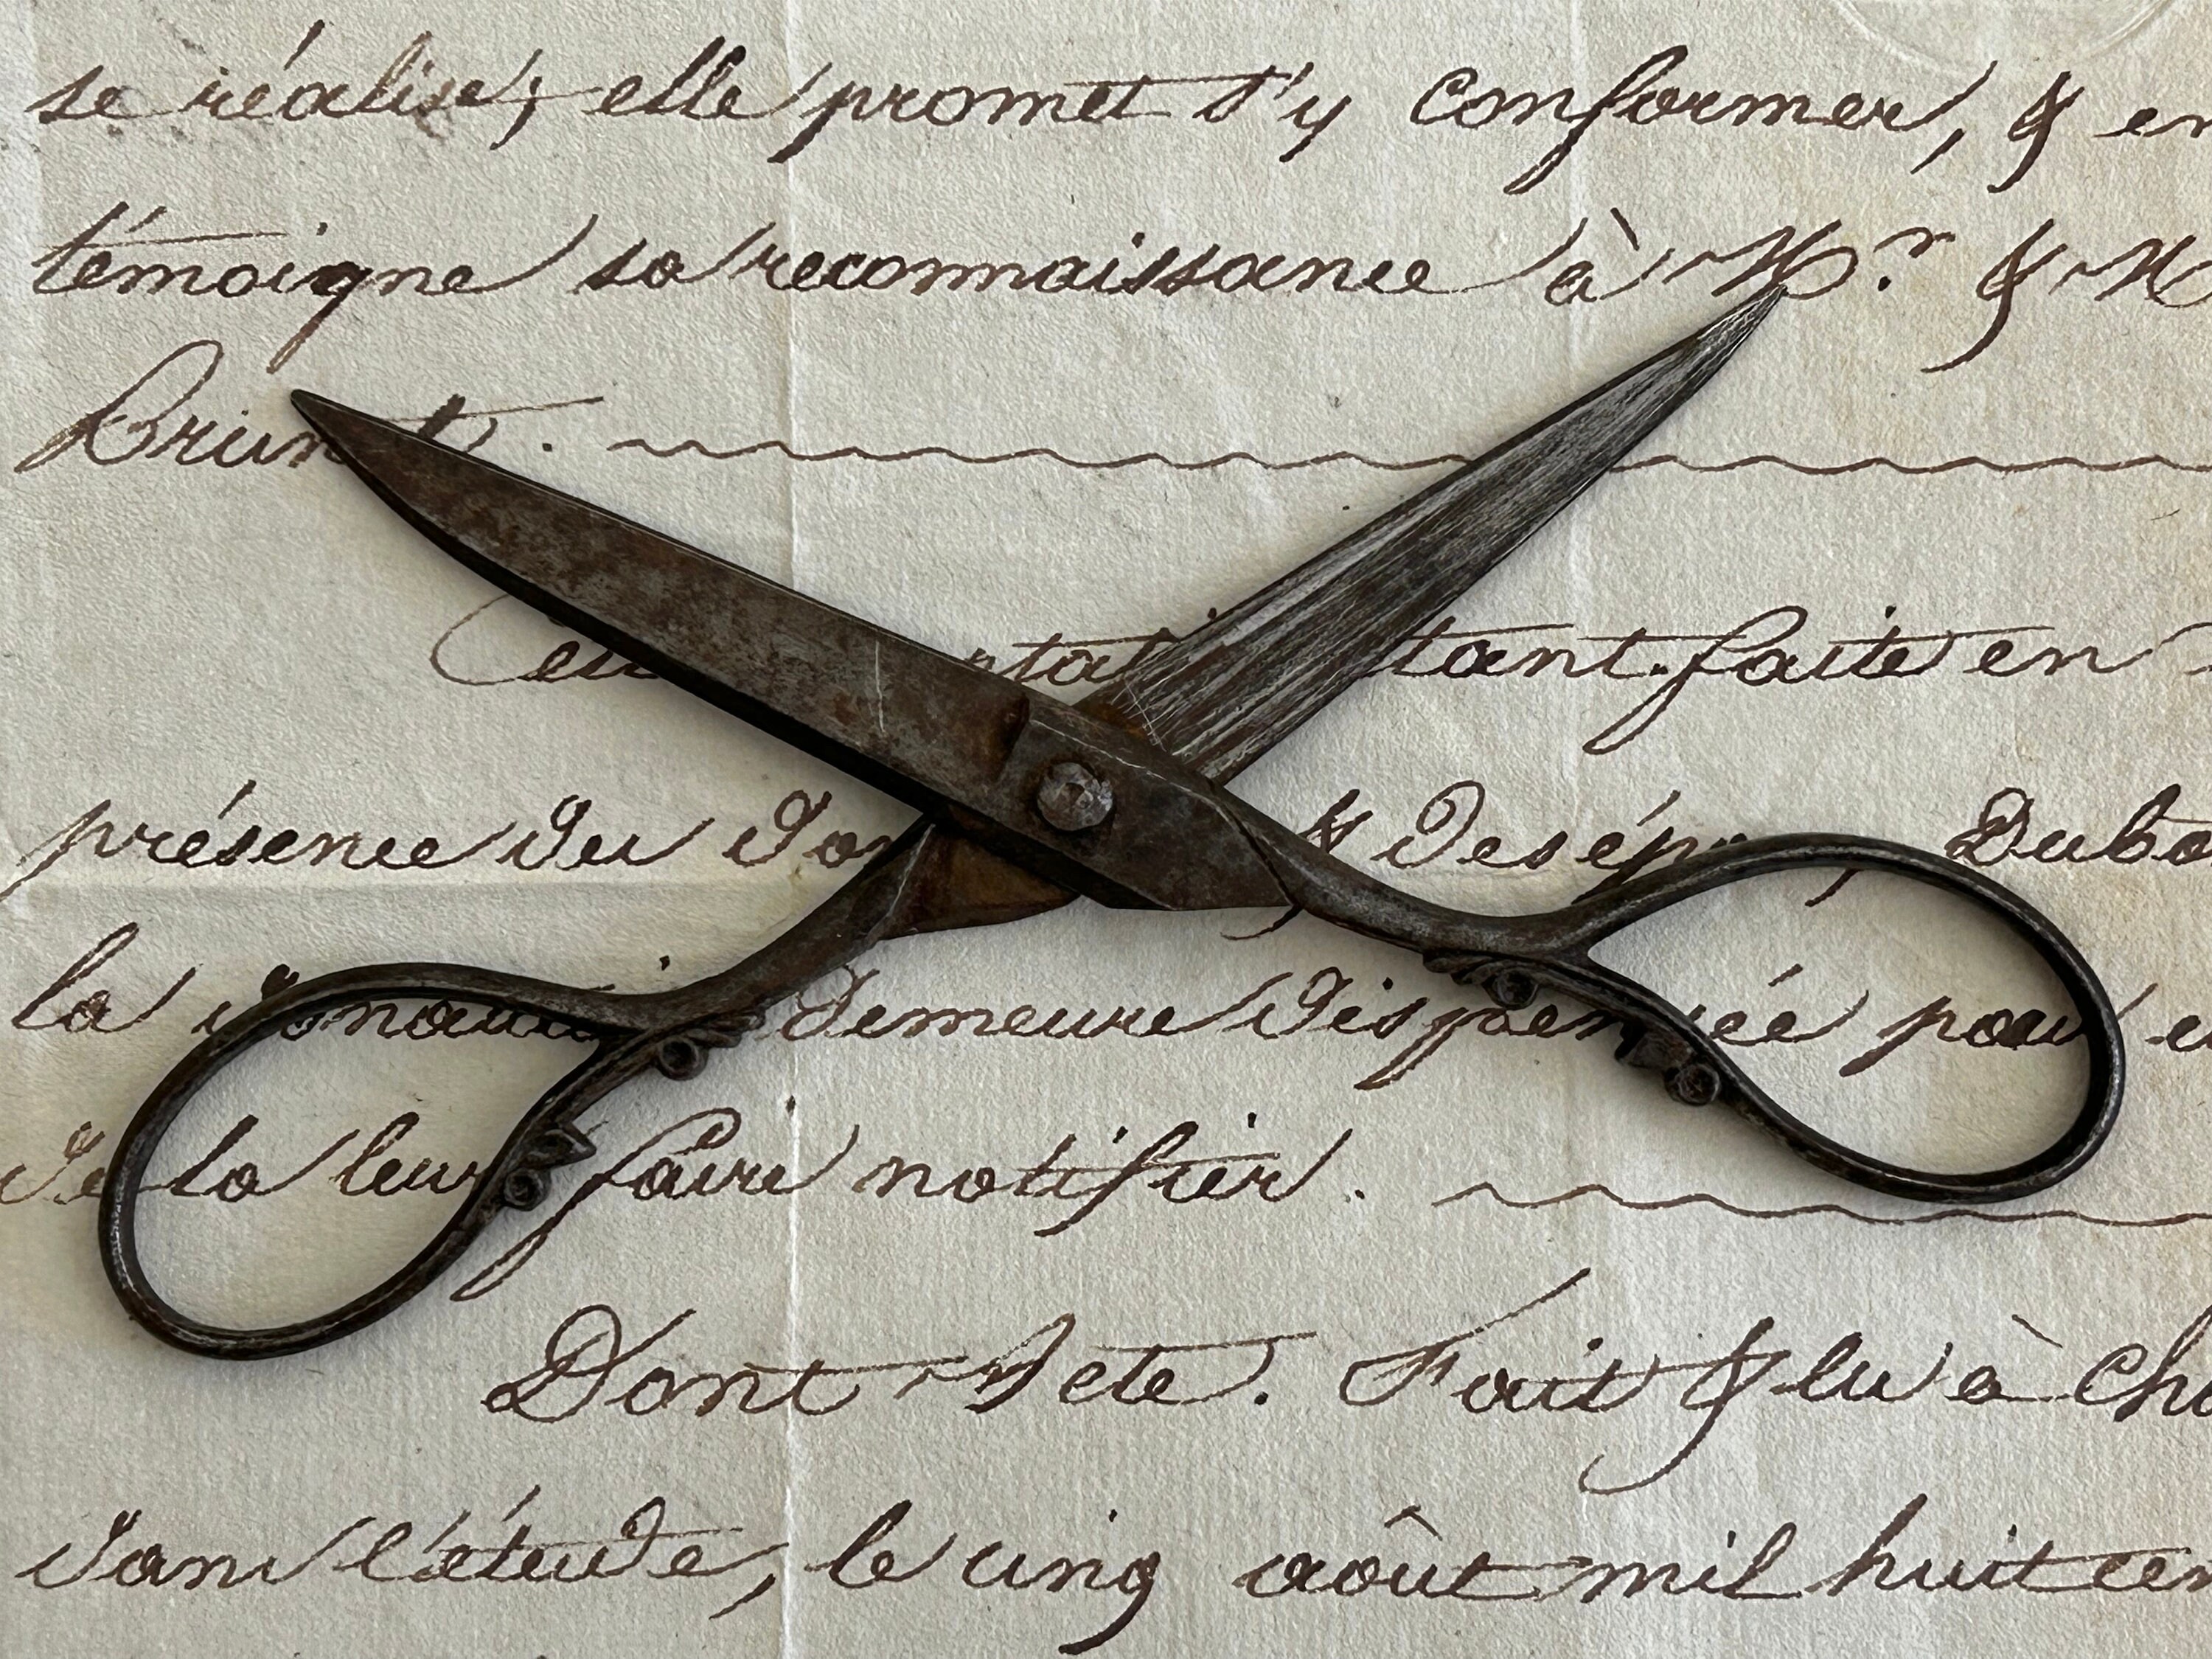 se réalise; elle promet s'y conformer, & en
témoigne sa reconnaissance à Mr. & M
Brunet.
tant faite en
présence du & Deséprés Dubo
la demeure dispensée pour
De la leur faire notifier.
Dont Acte. Fait & lu à Ch
dans l'étude, le cinq août mil huit cen